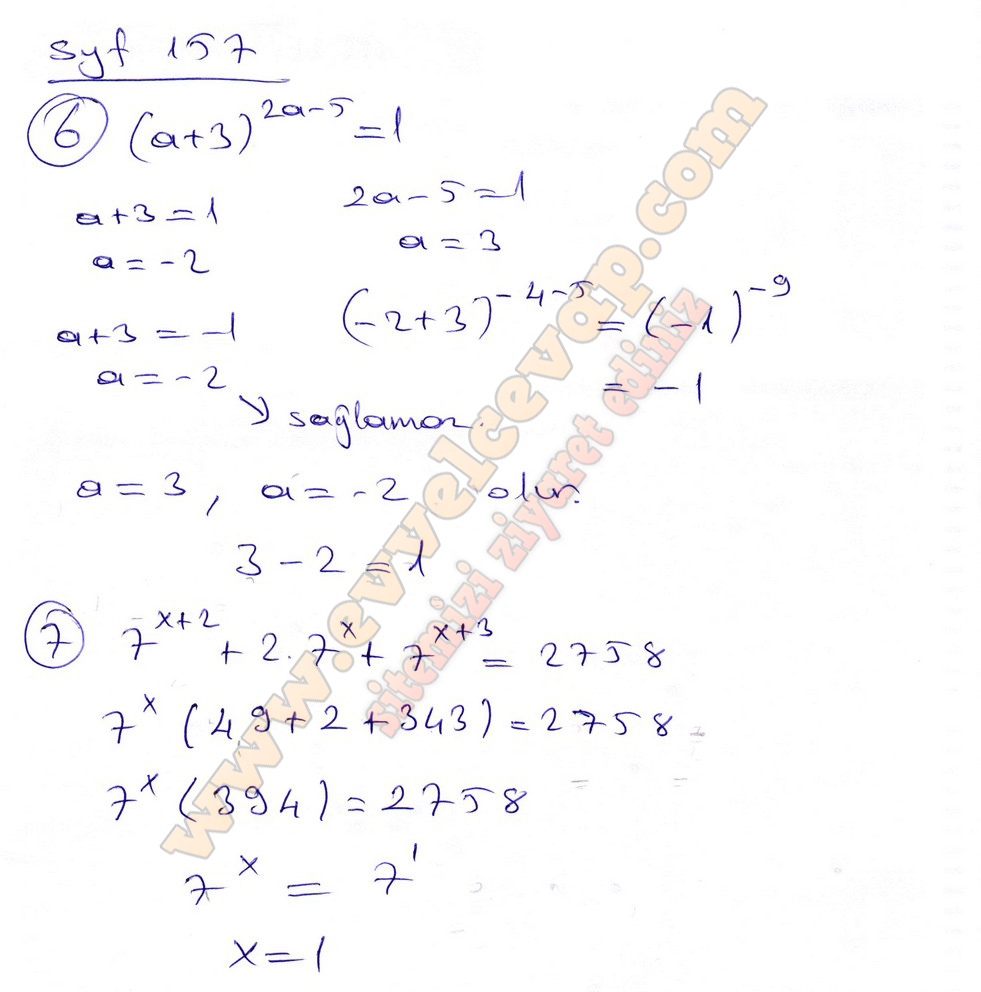 syf 157
6 (a+3)^{2a-5} = 1
a+3 = 1
a = -2
2a-5 = 1
a = 3
a+3 = -1
a = -2
(-2+3)^{-4-5} = (-1)^{-9}
= -1
↘ sağlamaz.
a = 3, a = -2 olur.
3 - 2 = 1
7 7^{x+2} + 2.7^x + 7^{x+3} = 2758
7^x (49+2+343) = 2758
7^x (394) = 2758
7^x = 7^1
x = 1
www.evvelcevap.com
sitemizi ziyaret ediniz